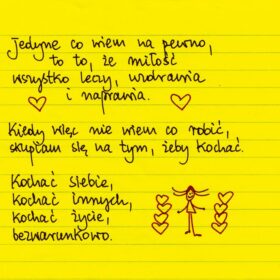 Jedyne co wiem na pewno,
to to, że miłość
wszystko leczy, uzdrawia
i naprawia.
Kiedy więc nie wiem co robić,
skupiam się na tym, żeby kochać.
Kochać siebie,
kochać innych,
kochać życie,
bezwarunkowo.